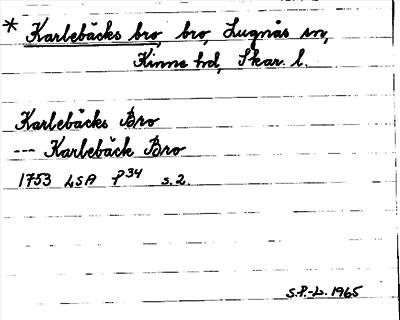 * Karlebäcks bro, bro, Lugnås sn,
Kinne hd, Skar. l.
Karlebäcks Bro
--- Karlebäck Bro
1753 LSA P34 s.2.
S.P.-L. 1965